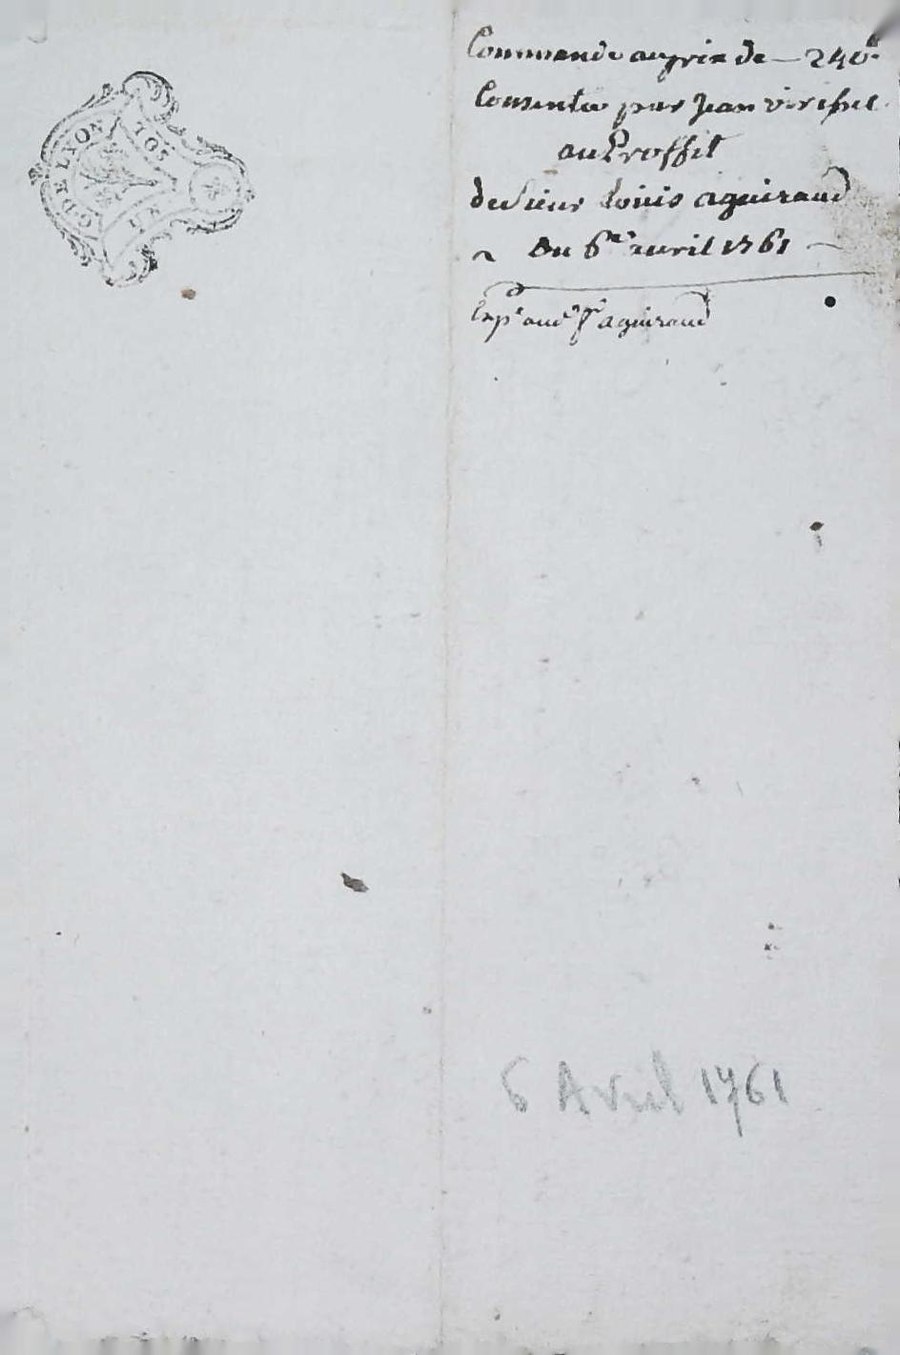 G. DE LYON
DIX SOLS
Commande au prix de — 240#
Consentie par Jean
au Proffit
du Sieur Louis aguiraud
Du 6me avril 1761
Exp. au d. Sr aguiraud
6 Avril 1761